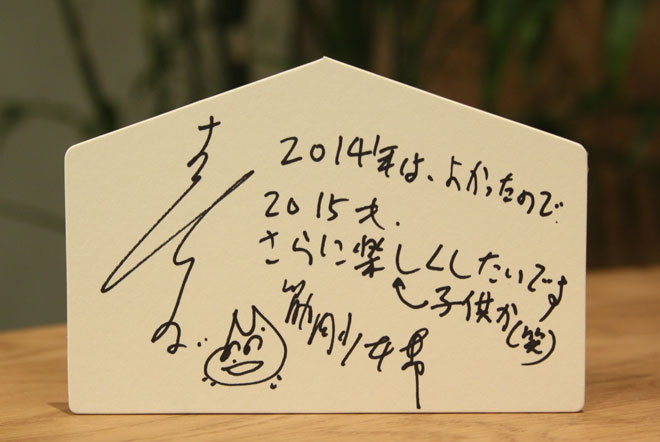 2014年は、よかったので
2015も、
さらに楽しくしたいです
子供か(笑)
筋肉少女帯